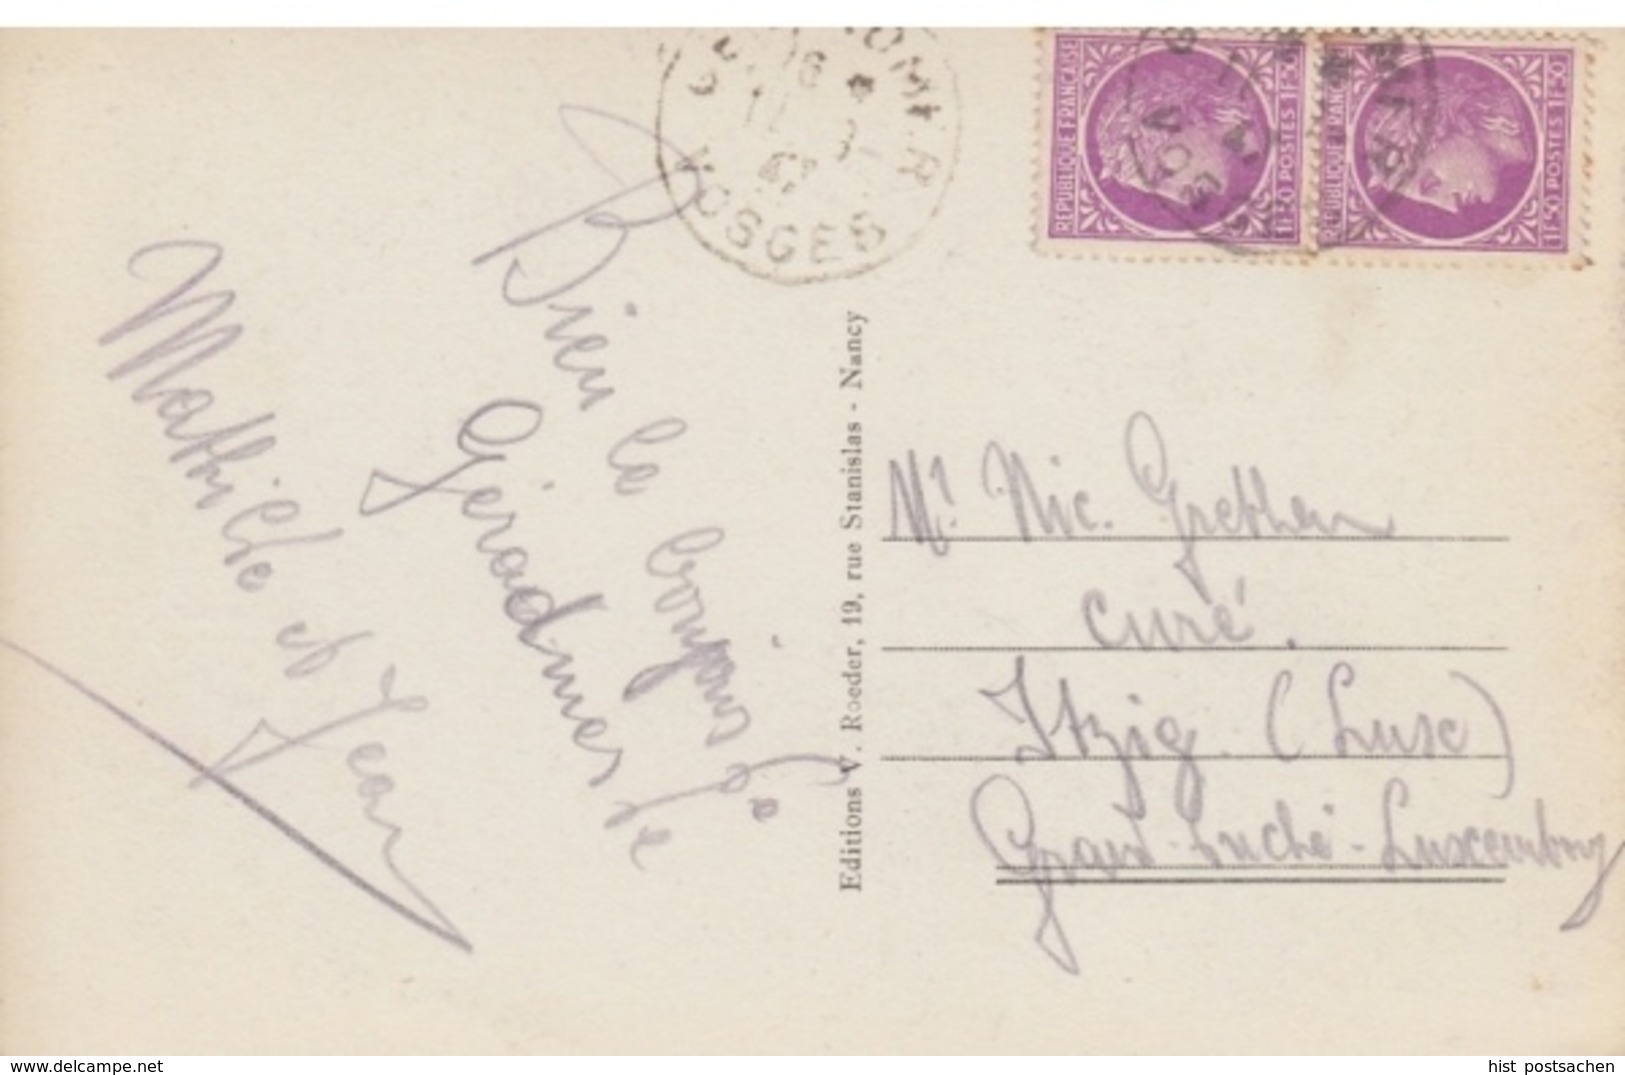 Bien le bonjour de
Gérardmer de
Mathilde et Jean
VOSGES
REPUBLIQUE FRANÇAISE
POSTES 1F50
REPUBLIQUE FRANÇAISE
1F50 POSTES 1F50
Editions V. Roeder, 19, rue Stanislas - Nancy
Mr Nic. Grethen
curé.
Itzig. (Luxe)
Grand-Duché-Luxembourg
www.delcampe.net
hist postsachen